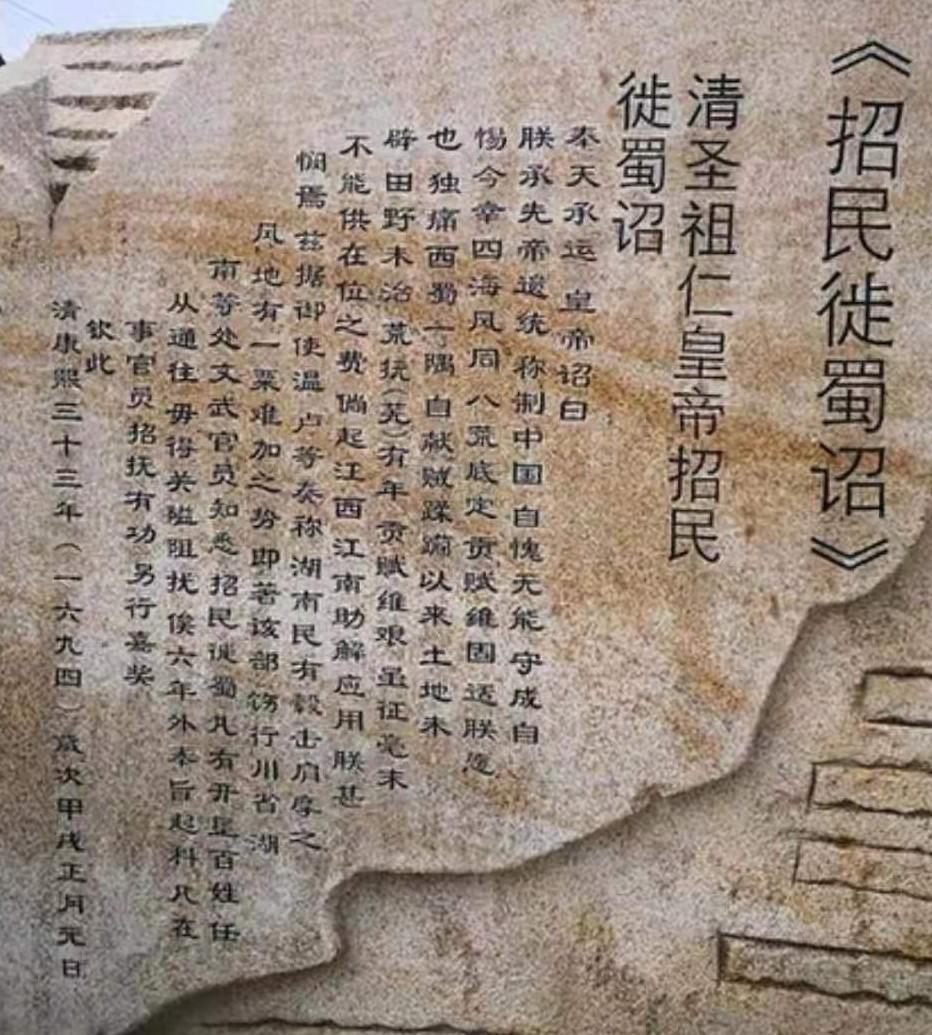 《招民徙蜀诏》
清圣祖仁皇帝招民
徙蜀诏
奉天承运 皇帝诏曰
朕承先帝遗统 称制中国 自愧无能 守成自
惕 今幸四海风同 八荒底定 贡赋维固 适朕
也 独痛西蜀一隅 自献贼蹂躏以来 土地未
辟 田野未治 荒抚(芜)有年 贡赋维艰 虽征毫末
不能供在位之费 倘起江西江南助解应用 朕甚
悯焉 兹据御使温卢等奏称 湖南民有毂击肩摩之
风 地有一粟难加之势 即著该部 饬行川省湖
南等处文武官员知悉 招民徙蜀 凡有开垦百姓 任
从通往 毋得关隘阻扰 俟六年外 奉旨起科 凡在
事官员 招抚有功 另行嘉奖
钦此
清康熙三十三年（一六九四）岁次甲戌正月元日